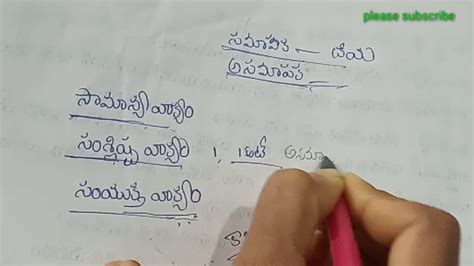 please subscribe
సమాపక — క్రియ
అసమాపక —
సామాన్య వాక్యం
సంశ్లిష్ట వాక్యం 1, 1కటే అసమా
సంయుక్త వాక్యం